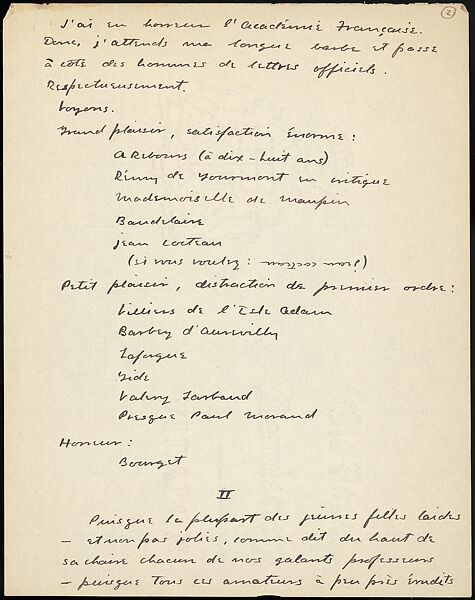 2
J'ai en horreur l'Académie Française.
Donc, j'attends ma longue barbe et passe
à côté des hommes de lettres officiels.
Respectueusement.
Voyons.
Grand plaisir, satisfaction énorme:
A Rebours (à dix-huit ans)
Rémy de Gourmont en critique
Mademoiselle de Maupin
Baudelaire
Jean Cocteau
(si vous voulez:
Petit plaisir, distraction de premier ordre:
Villiers de l'Isle Adam
Barbey d'Aurevilly
Laforgue
Gide
Valery Larbaud
Presque Paul Morand
Horreur:
Bourget
II
Puisque la plupart des jeunes filles laides
- et non pas jolies, comme dit du haut de
sa chaire chacun de nos galants professeurs
- puisque tous ces amateurs à peu près érudits